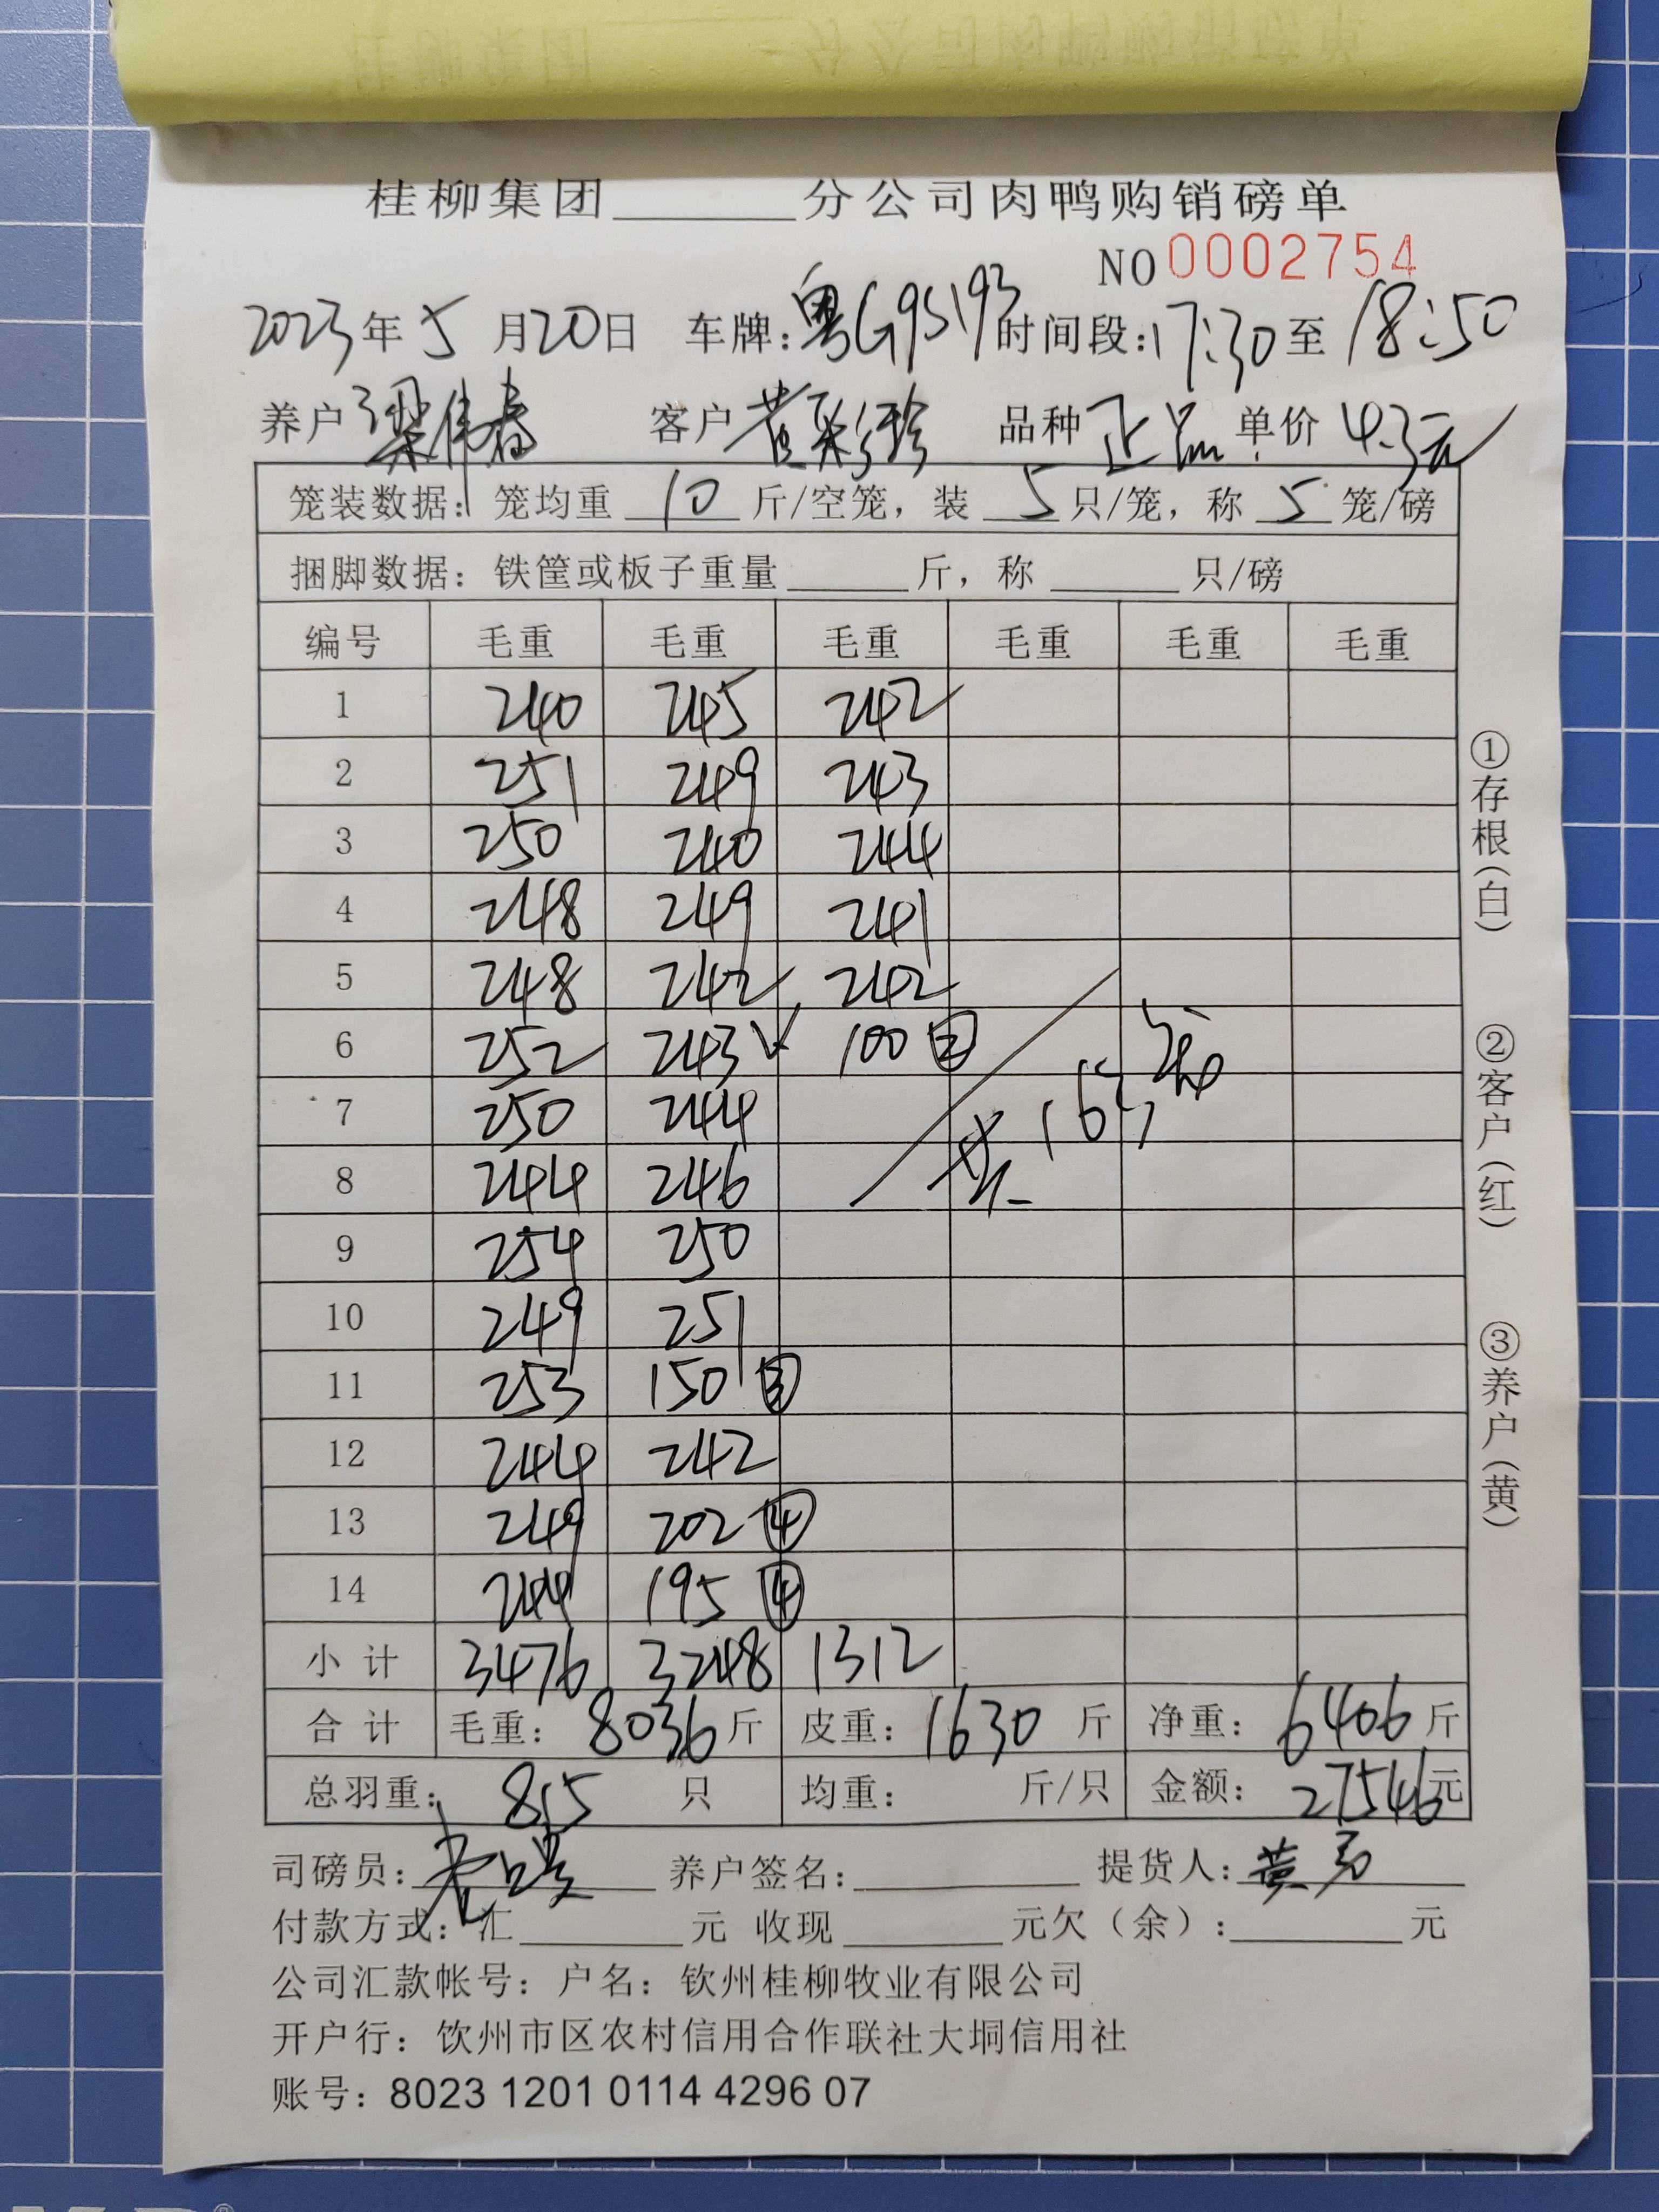 桂柳集团______分公司肉鸭购销磅单
NO 0002754
2023年5月20日 车牌:粤G95193 时间段:17:30至18:50
养户 梁伟春 客户 黄彩珍 品种 正品 单价 4.3元
笼装数据：笼均重 10 斤/空笼，装 5 只/笼，称 5 笼/磅
捆脚数据：铁筐或板子重量______斤，称______只/磅
编号 毛重 毛重 毛重 毛重 毛重 毛重
1 240 245 242
2 251 249 243
3 250 240 244
4 248 249 241
5 248 242 242
6 252 243 100 ②
7 250 244
8 244 246
9 254 250
10 249 251
11 253 150 ③
12 244 242
13 249 202 ④
14 244 195 ④
共163笼
小计 3476 3248 1312
合计 毛重：8036斤 皮重：1630斤 净重：6406斤
总羽重：815只 均重： 斤/只 金额：27546元
司磅员： 养户签名：______ 提货人：黄
付款方式：汇______元 收现______元欠（余）:______元
公司汇款帐号：户名：钦州桂柳牧业有限公司
开户行：钦州市区农村信用合作联社大垌信用社
账号：8023 1201 0114 4296 07
①存根(白)
②客户(红)
③养户(黄)